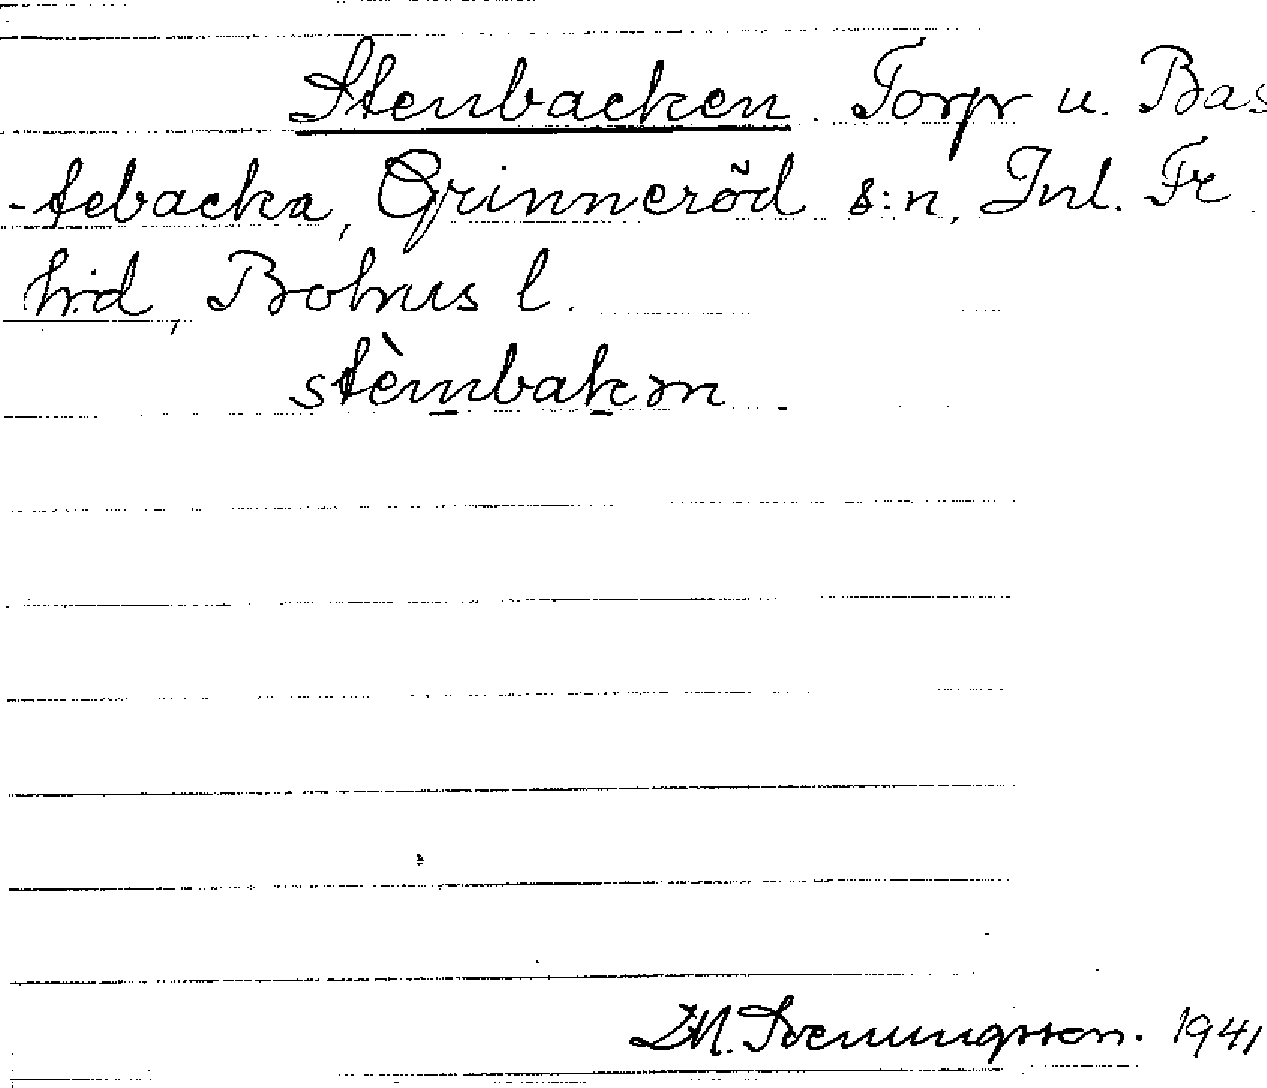 Stenbacken. Torp u. Bas
-tebacka, Grinneröd s:n, Inl. Fr
h:d, Bohus l.
stèmbakən
M. Svenungsson. 1941